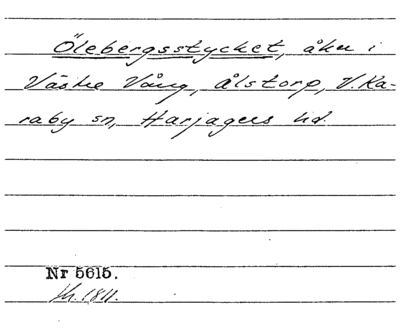 Ölebergsstycket, åker i
Västre Vång, Ålstorp, V. Ka-
raby sn, Harjagers hd.
Nr 5615.
Kr. 1811.